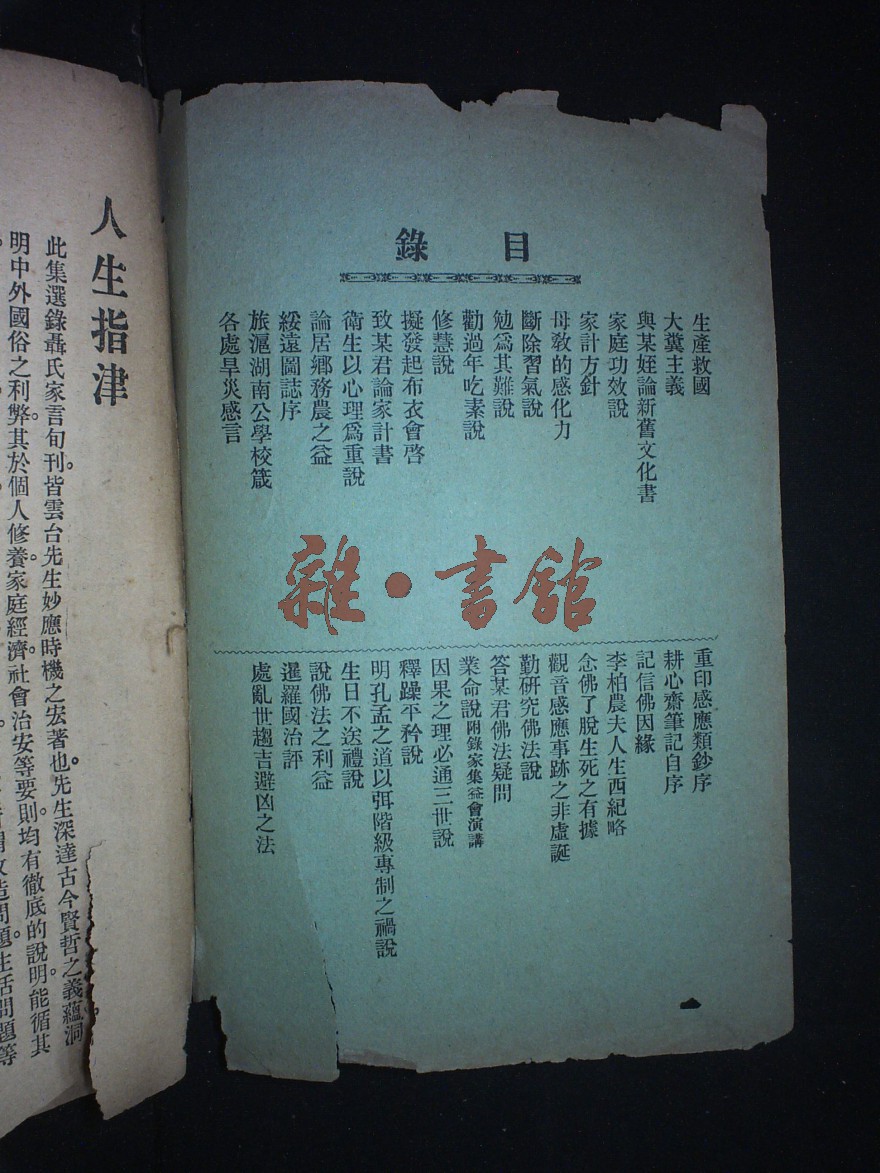 目錄
生產救國
大糞主義
與某姪論新舊文化書
家庭功效說
家計方針
母教的感化力
斷除習氣說
勉爲其難說
勸過年吃素說
修慧說
擬發起布衣會啓
致某君論家計書
衛生以心理爲重說
論居鄉務農之益
綏遠圖誌序
旅滬湖南公學校箴
各處旱災感言
重印感應類鈔序
耕心齋筆記自序
記信佛因緣
李柏農夫人生西紀略
念佛了脫生死之有據
觀音感應事跡之非虛誕
勤研究佛法說
答某君佛法疑問
業命說附錄家集益會演講
因果之理必通三世說
釋躁平矜說
明孔孟之道以弭階級專制之禍說
生日不送禮說
說佛法之利益
暹羅國治評
處亂世趨吉避凶之法
雜·書館
人生指津
此集選錄聶氏家言旬刊。皆雲台先生妙應時機之宏著也。先生深達古今賢哲之義蘊。洞
明中外國俗之利弊。其於個人修養。家庭經濟。社會治安等要則。均有徹底的說明。能循其
改造問題。生活問題等